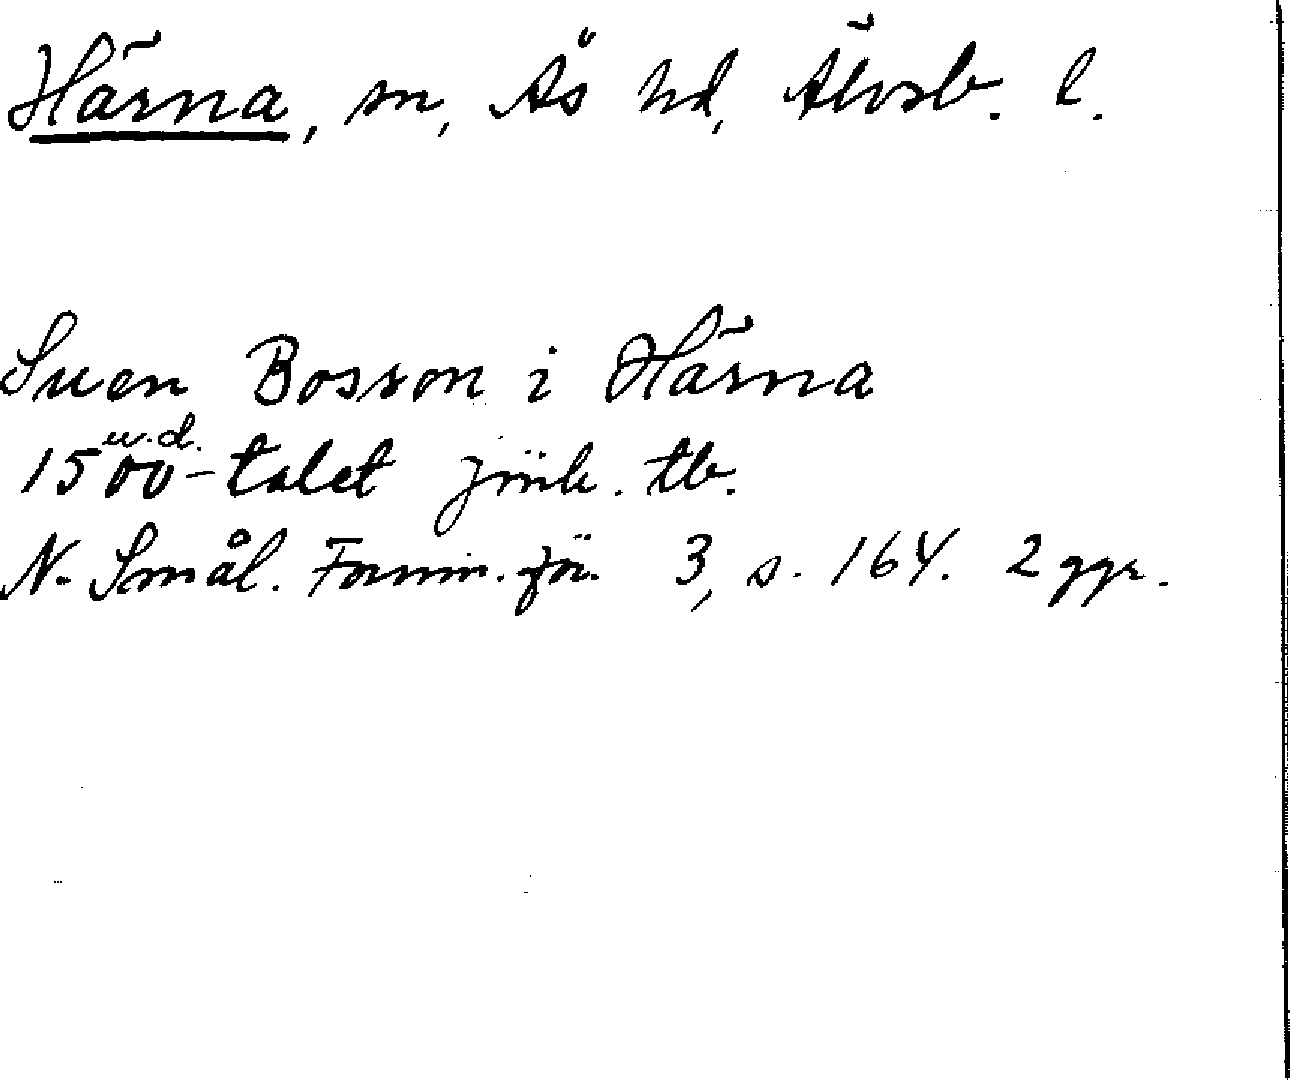 Härna, sn, Ås hd, Älvsb. l.
Suen Bosson i Härna
u.d.
1500-talet jönk. tb.
N. Smål. Fornm. för. 3, s. 164. 2 ggr.